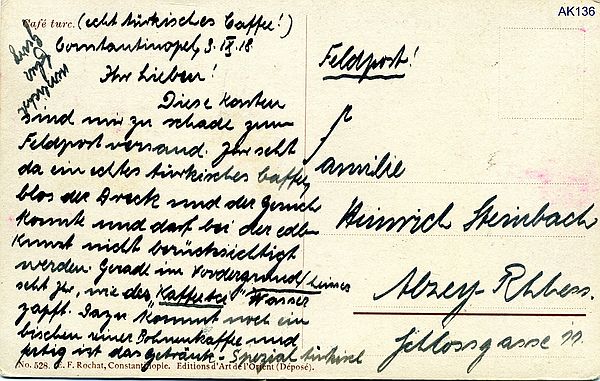 AK136
Café turc. (echt türkisches Caffee!)
Constantinopel, 3. IX. 18
Ihr Lieben!
Diese Karten
sind mir zu schade zum
Feldpost versand. Ihr seht
da ein echtes türkisches Caffee,
blos der Dreck und der Geruch
kommt und darf bei der edlen
Kunst nicht berücksichtigt
werden. Gerade im Vordergrund
seht Ihr, wie der "Kaffeetee" Wasser
zapft. Dazu kommt noch ein
bischen reiner Bohnenkaffee und
fertig ist das Getränk - Spezial türkisch
Feldpost!
Familie
Heinrich Steinbach
Alzey - Rhhess.
Schlossgasse 11.
No. 528. E. F. Rochat, Constantinople. Editions d'Art de l'Orient (Déposé).